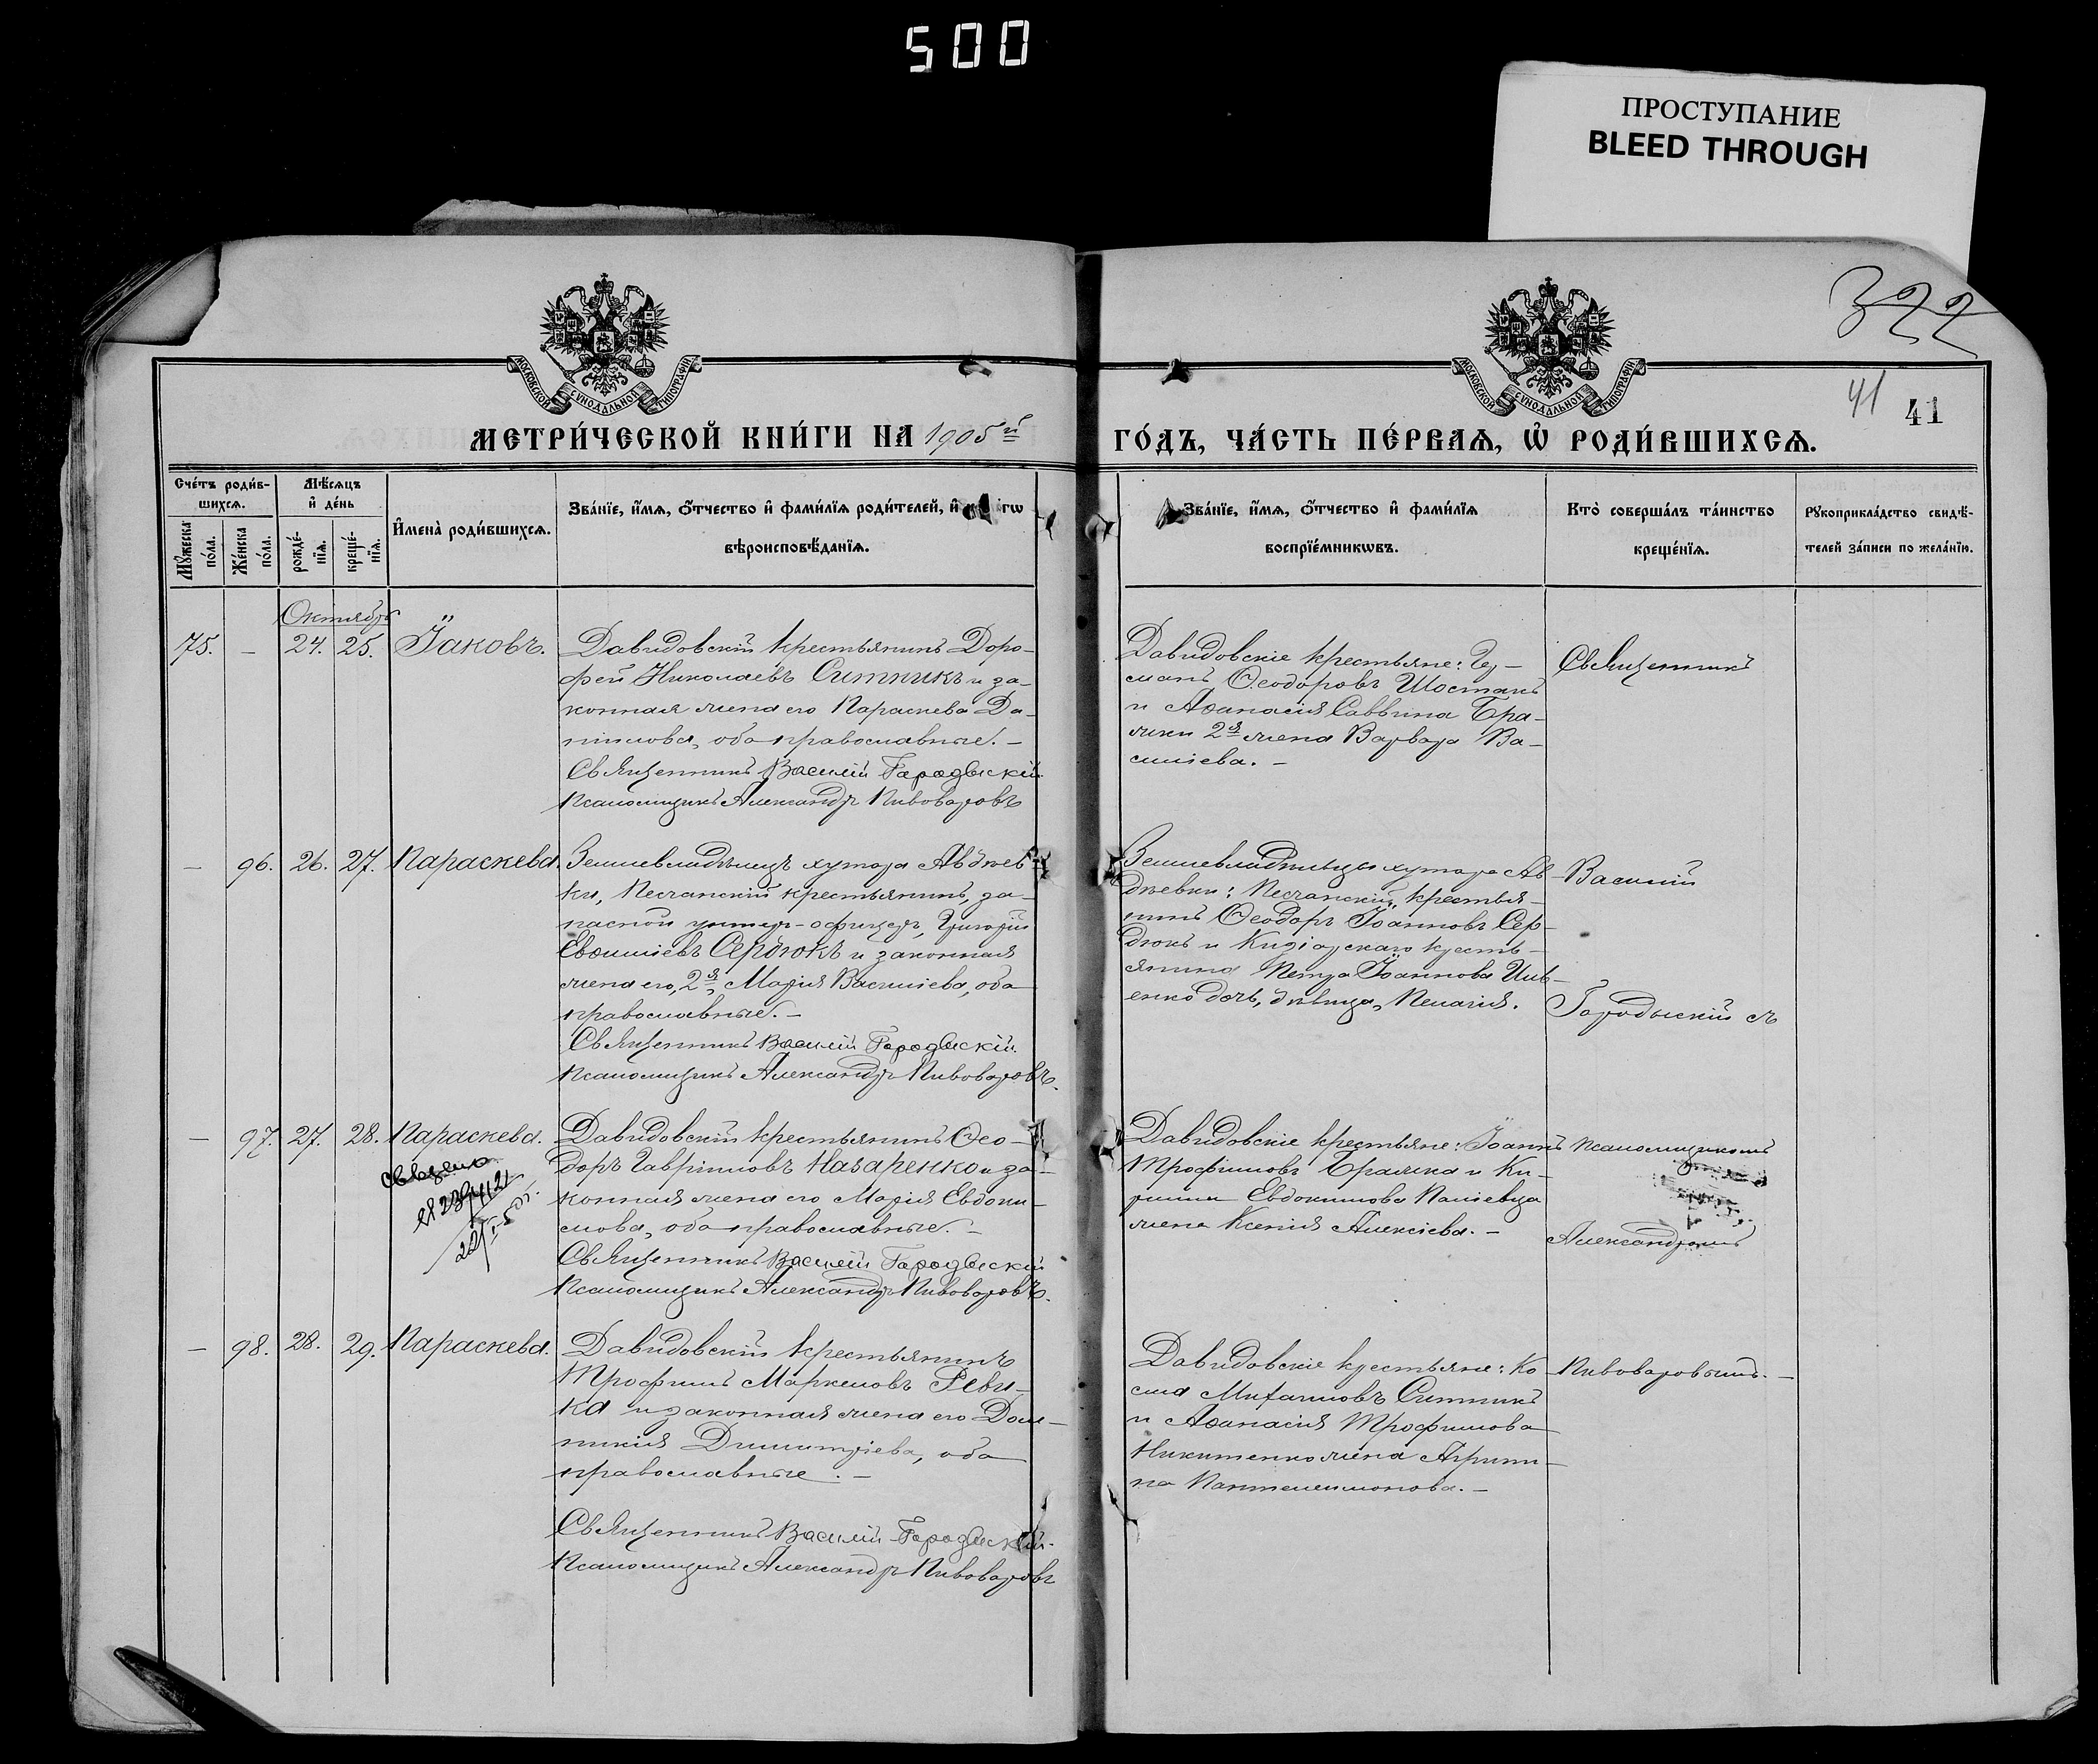 500
ПРОСТУПАНИЕ
BLEED THROUGH
322
МОСКОВСКОЙ СѴНОДАЛЬНОЙ ТИПОГРАФІИ
МОСКОВСКОЙ СѴНОДАЛЬНОЙ ТИПОГРАФІИ
41
41
МЕТРИ́ЧЕСКОЙ КНИ́ГИ НА 1905й
ГО́ДЪ, ЧА́СТЬ ПЕ́РВАѦ, Ѡ҆ РОДИ́ВШИХСѦ.
Сче́тъ роди́в-
шихсѧ.
Мꙋжеска по́ла.
Же́нска по́ла.
Мѣ́сѧцъ
и҆ де́нь
рожде́-
нїѧ.
креще́-
нїѧ.
И҆мена̀ роди́вшихсѧ.
Зва́нїе, и҆́мѧ, ѻ҆́тчество и҆ фами́лїѧ роди́телей, и҆
вѣроисповѣ́данїѧ.
Зва́нїе, и҆́мѧ, ѻ҆́тчество и҆ фами́лїѧ
воспрїе́мникѡвъ.
Кто̀ соверша́лъ та́инство
креще́нїѧ.
Рꙋкоприкла́дство свидѣ́-
телей за́писи по жела́нїю.
Октябрь
75. – 24. 25. Іаковъ.
Давидовскій крестьянинъ Доро-
фей Николаевъ Ситникъ и за-
конная жена его Параскева Да-
нилова, оба православные. –
Священникъ Василій Городыскій
Псаломщикъ Александръ Пивоваровъ
Давидовскіе крестьяне:
Ѳеодоровъ Шостакъ
и Аѳанасія Саввина Бра-
жки 2я жена Варвара Ва-
силіева. –
Священникъ
– 96. 26. 27. Параскева.
Землевладѣлецъ хутора Авдѣев-
ки, Песчанскій крестьянинъ, за-
пасной унтер-офицеръ, Григорій
Евѳиміевъ Сердюкъ и законная
жена его, 2я, Марія Василіева, оба
православные. –
Священникъ Василій Городыскій.
Псаломщикъ Александръ Пивоваровъ.
Землевладѣльцы хутора Ав-
дѣевки: Песчанскій крестья-
нинъ Ѳеодоръ Іоанновъ Сер-
дюкъ и кресть-
янина Петра Іоаннова Ив-
енко дочь, дѣвица, Пелагія.
Василій
Городыскій съ
– 97. 27. 28. Параскева.
Давидовскій крестьянинъ Ѳео-
доръ Гавріиловъ Назаренко и за-
конная жена его Марія Евдоки-
мова, оба православные. –
Священникъ Василій Городыскій
Псаломщикъ Александръ Пивоваровъ.
Давидовскіе крестьяне: Іоаннъ
Трофимовъ Бражка и Ки-
Евдокимова Паліевца
жена Ксенія Алексіева. –
псаломщикомъ
Александромъ
– 98. 28. 29. Параскева.
Давидовскій крестьянинъ
Трофимъ Маркеловъ Реви-
ка и законная жена его Дом-
никія Димитріева, оба
православные. –
Священникъ Василій Городыскій.
Псаломщикъ Александръ Пивоваровъ
Давидовскіе крестьяне: Ко-
сма Михаиловъ Ситникъ
и Аѳанасія Трофимова
Никитенко жена Агрипи-
на Пантелеимонова. –
Пивоваровымъ. –